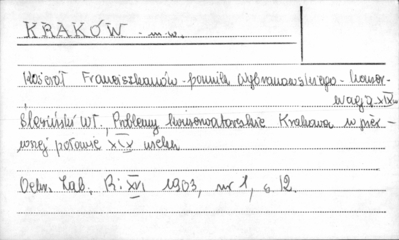 KRAKÓW - m.w.
Kościół Franciszkanów - pomnik Wybranowskiego - konser-
wacja XIX w
Ślesiński Wł., Problemy konserwatorskie Krakowa w pier-
wszej połowie XIX wieku
Ochr. Zab. R: XVI 1903, nr 1, s. 12.